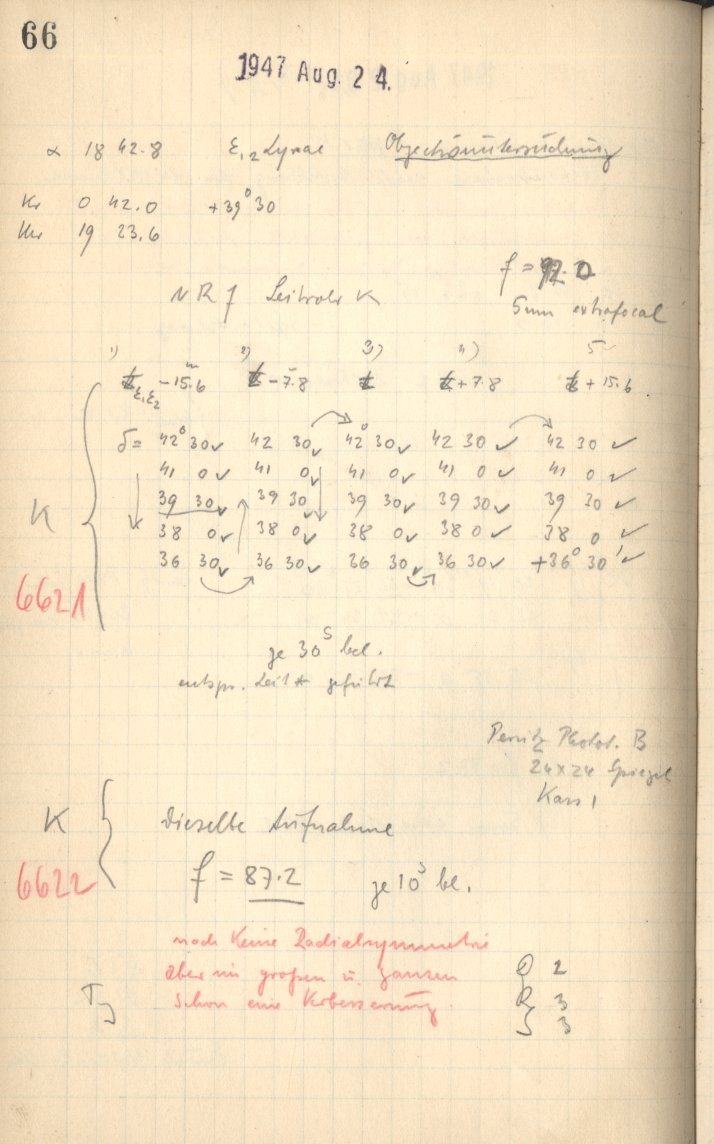 66
1947 Aug. 24.
α 18 42.8 ε1,2 Lyrae Objectivuntersuchung
Kr 0 42.0 +39° 30
Uhr 19 23.6
f = 92.0
5mm extrafocal
Leitrohr K
1) 2) 3) 4) 5
t ε1ε2 -15.6m t -7.8m t t +7.8 t +15.6
δ = 42° 30 ✓ 42 30 ✓ 42° 30 ✓ 42 30 ✓ 42 30 ✓
41 0 ✓ 41 0 ✓ 41 0 ✓ 41 0 ✓ 41 0 ✓
39 30 ✓ 39 30 39 30 ✓ 39 30 ✓ 39 30 ✓
K 38 0 ✓ 38 0 ✓ 38 0 ✓ 38 0 ✓ 38 0 ✓
36 30 ✓ 36 30 ✓ 36 30 ✓ 36 30 ✓ +36° 30' ✓
6621
je 30s bel.
entspr. Leit* geführt
Perutz Photot. B
24x24 Spiegel
Kass 1
K dieselbe Aufnahme
6622 f = 87.2 je 10s bel.
noch keine Radialsymmetrie
aber im großen u. ganzen Q 2
schon eine Verbesserung R 3
S 3